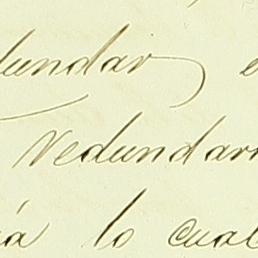 dundar e
redundar
ia lo cual